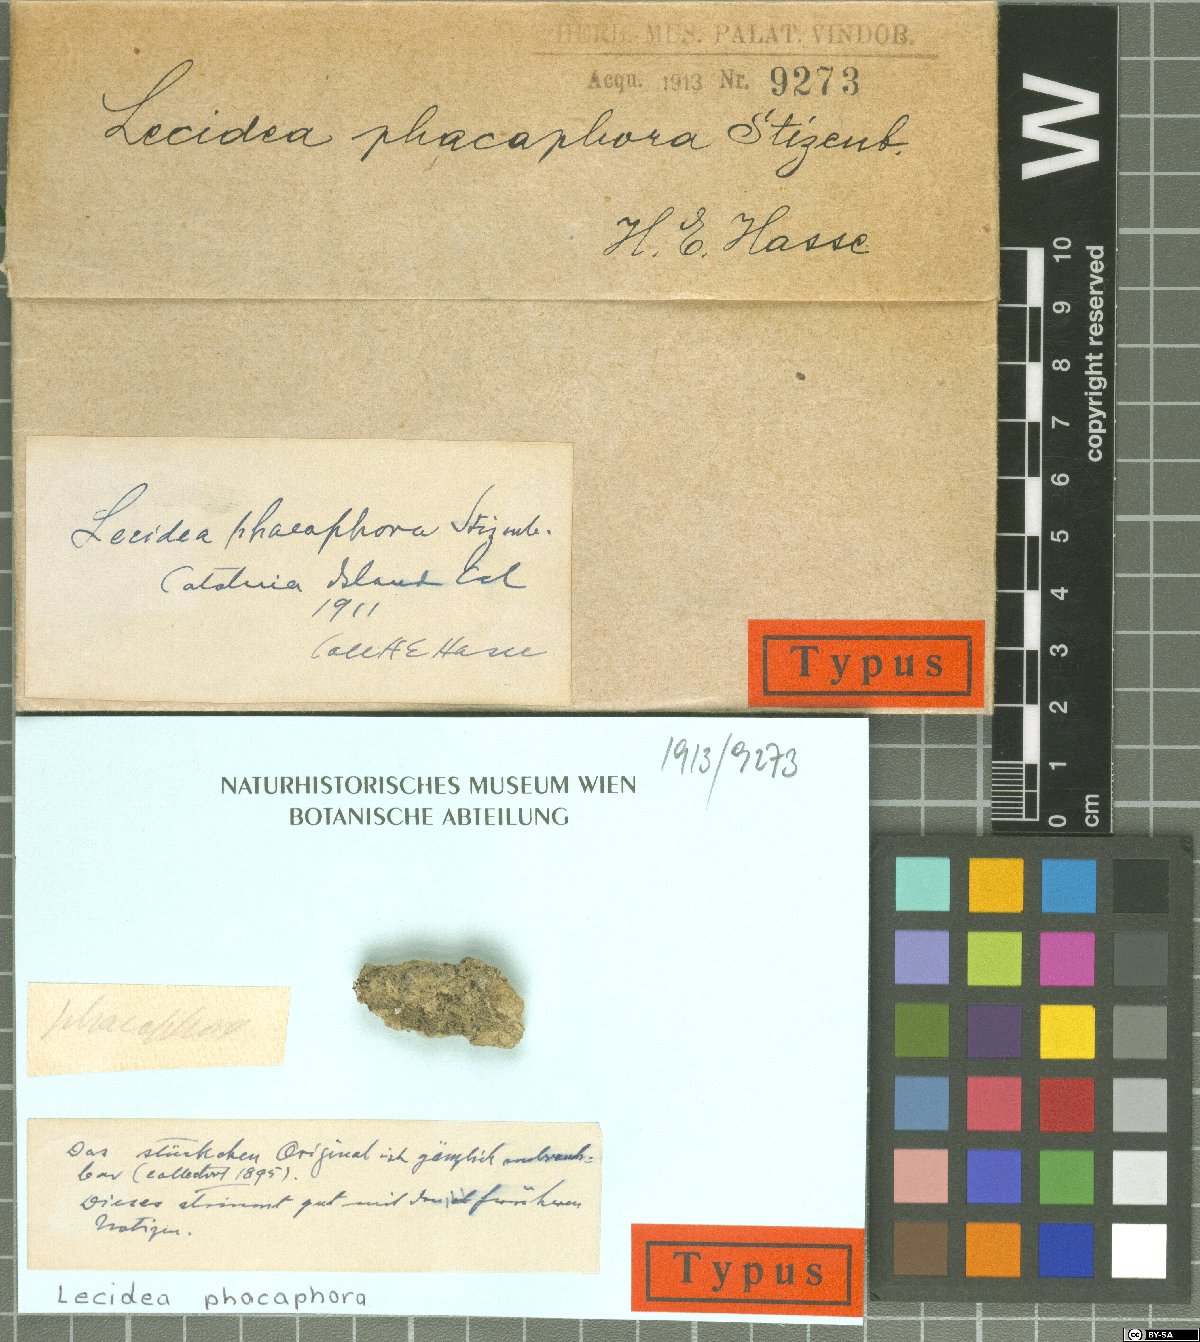 HERB. MUS. PALAT. VINDOB.
Acqu. 1913 Nr. 9273
Lecidea phacaphora Stizenb.
H. E. Hasse
Lecidea phacaphora Stizenb.
Catalina Island Cal
1911
Coll H E Hasse
Typus
W
10
9
8
7
6
5
4
3
2
1
0
cm
copyright reserved
NATURHISTORISCHES MUSEUM WIEN
BOTANISCHE ABTEILUNG
1913/9273
phacaphora
Das stückchen Original ist gänzlich unbrauch-
bar (collected 1895).
Dieses stimmt gut mit den früheren
Notizen.
Typus
Lecidea phacaphora
cc BY-SA